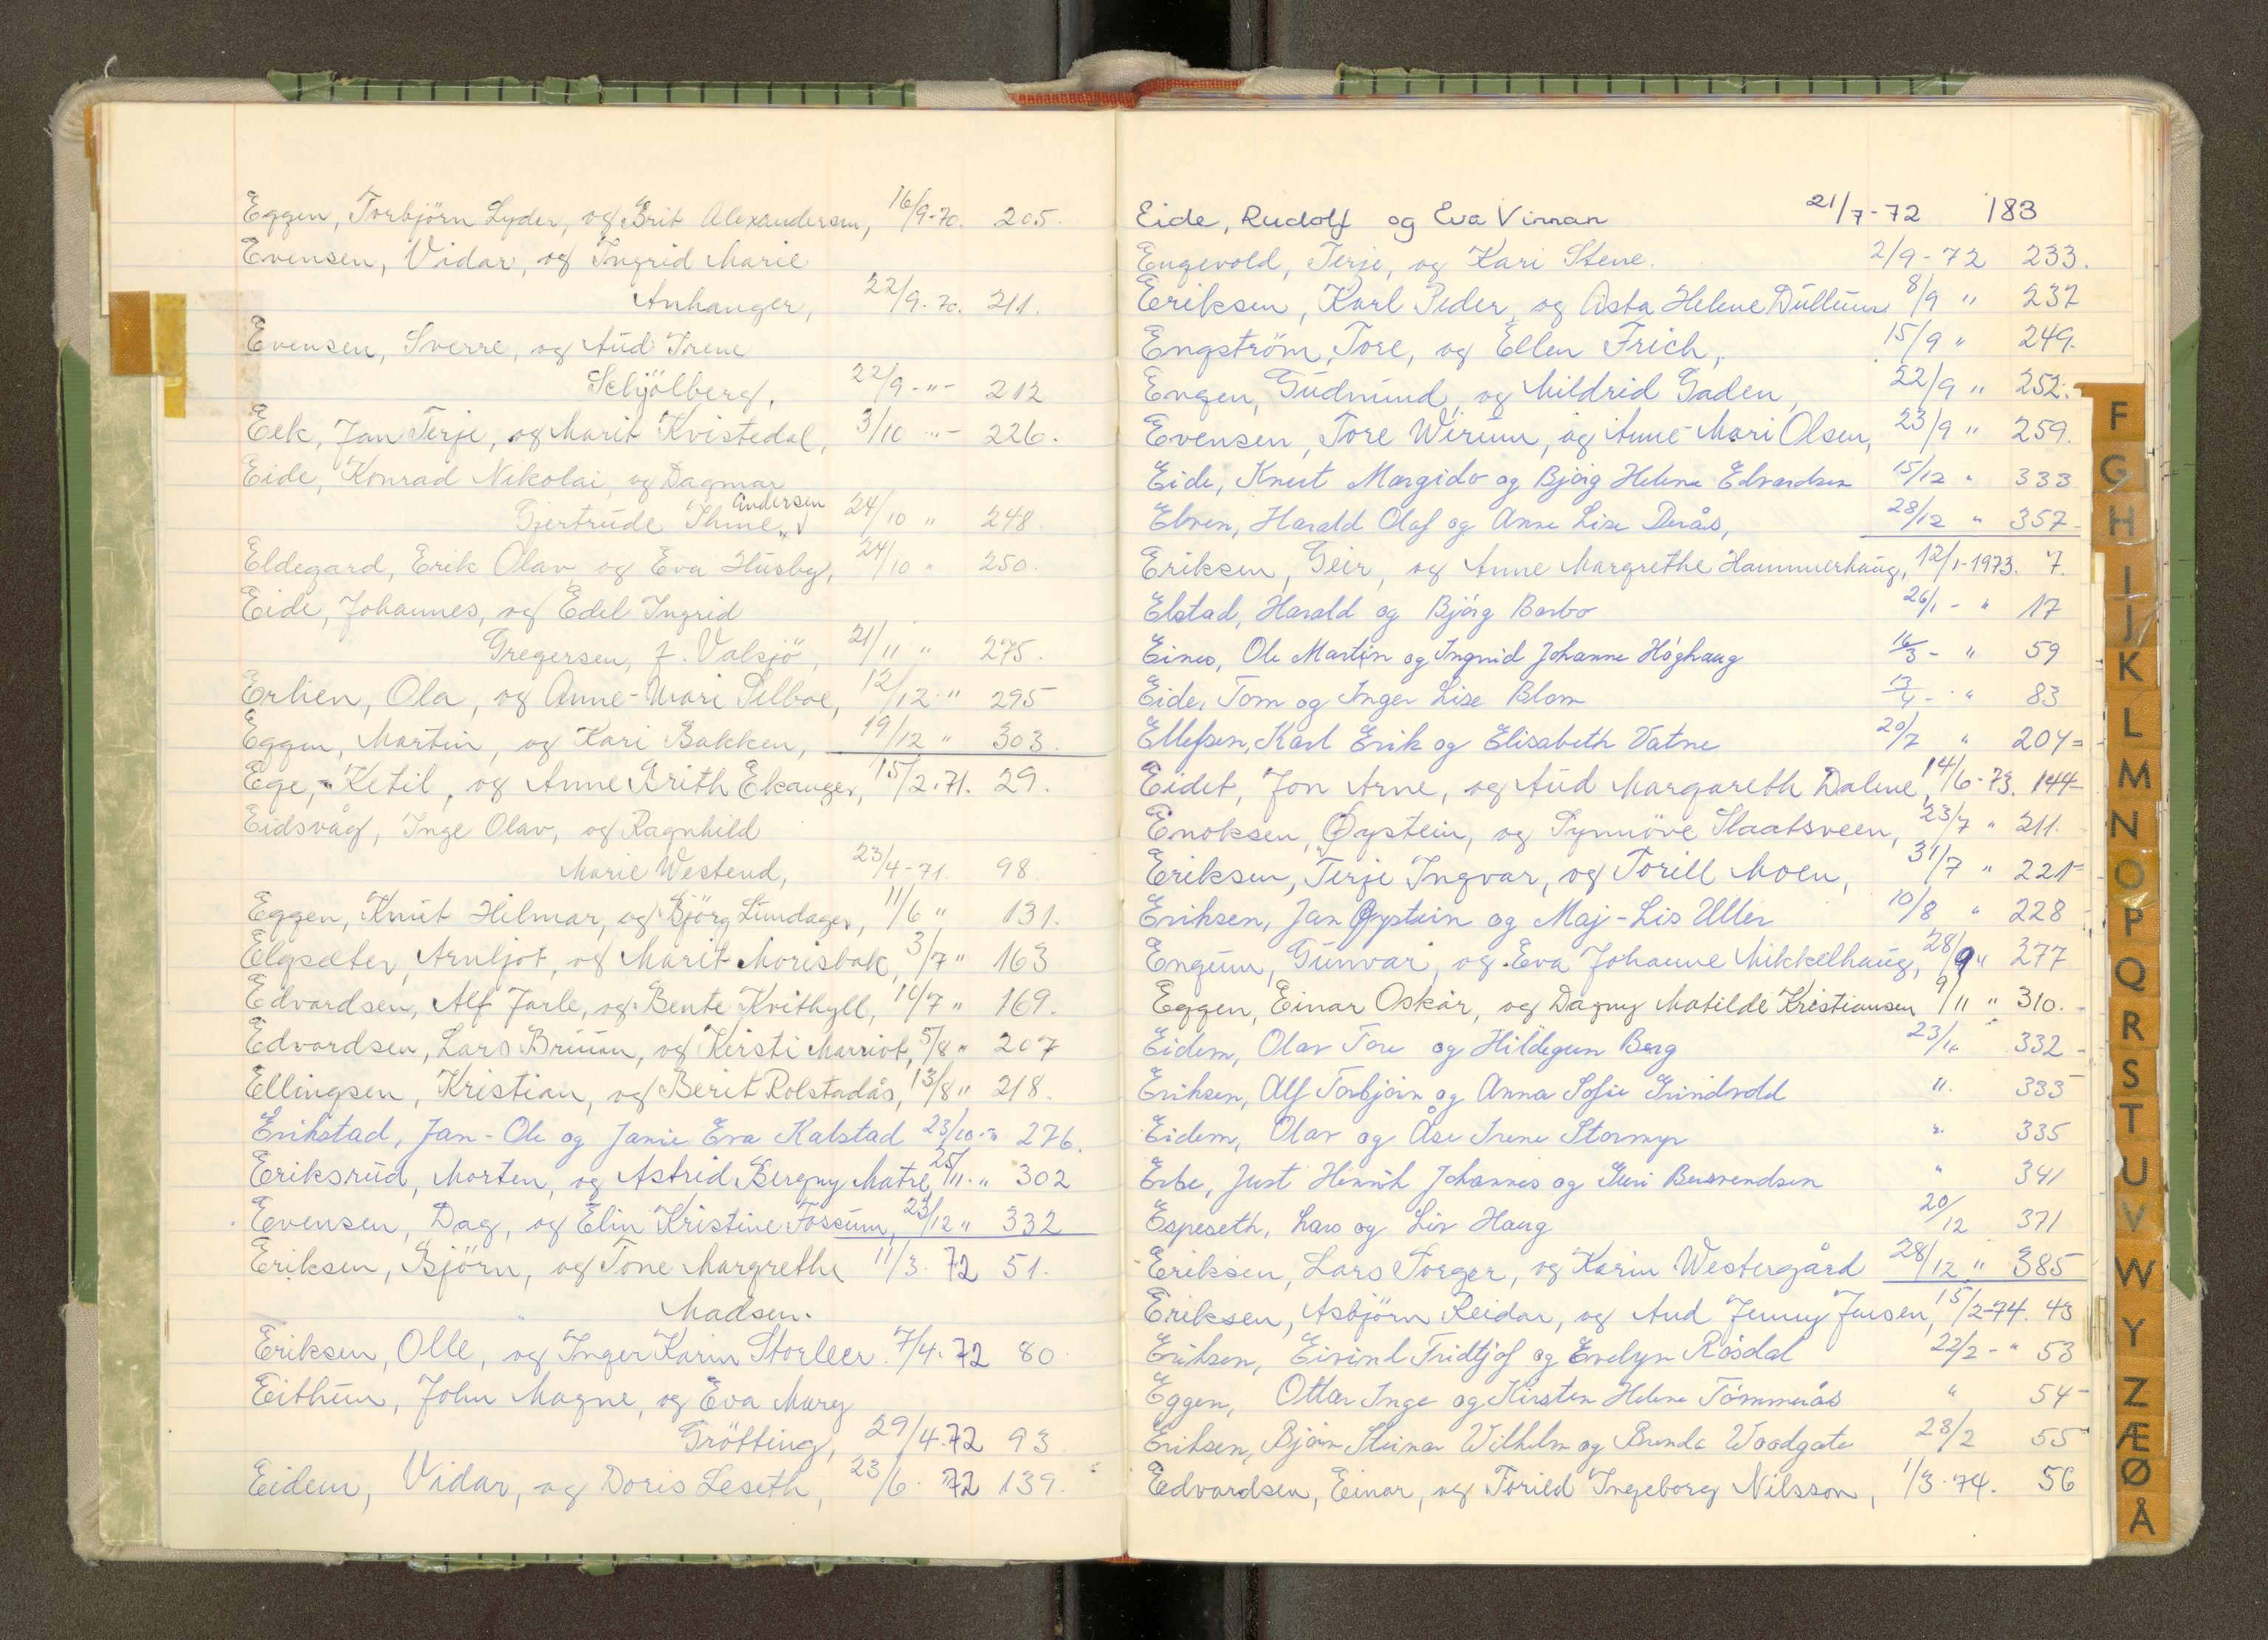 Eggen, Torbjörn Lyder, og Brit Alexandersen, 16/9-70. 205.
Evensen, Vidar, og Ingrid Marie
Anhanger, 22/9-70. 211.
Evensen, Sverre, og Aud Irene
Schjölberg, 22/9 -"- 212
Eek, Jan Terje, og Marit Kvistedal, 3/10 -"- 226.
Eide, Konrad Nikolai, og Dagmar
Andersen
Gjertrude Ihme, 24/10 " 248.
Eldegard, Erik Olav og Eva Husby, 24/10 " 250.
Eide, Johannes, og Edel Ingrid
Gregersen, f. Valsjö, 21/11 " 275.
Erlien, Ola, og Anne-Mari Selboe, 12/12 " 295
Eggen, Martin, og Kari Bakken, 19/12 " 303.
Ege, Ketil, og Anne Brith Ekanger, 15/2.71. 29.
Eidsvåg, Inge Olav, og Ragnhild
Marie Westend, 23/4-71. 98.
Eggen, Knut Hilmar, og Björg Lundager, 11/6 " 131.
Elgsæter, Arnljot, og Marit Morisbak, 3/7 " 163
Edvardsen, Alf Jarle, og Bente Kvithyll, 10/7 " 169.
Edvardsen, Lars Bruun, og Kirsti Marriot, 5/8 " 207
Ellingsen, Kristian, og Berit Rolstadås, 13/8 " 218.
Erikstad, Jan-Ole og Janie Eva Kalstad 23/10 -"- 276.
Eriksrud, Morten, og Astrid Bergny Matre, 25/11. " 302
Evensen, Dag, og Elin Kristine Fossum, 23/12 " 332
Eriksen, Björn, og Tone Margrethe 11/3. 72 51.
Madsen.
Eriksen, Olle, og Inger Karin Storleer. 7/4. 72 80.
Eithun, John Magne, og Eva Mary
Grötting, 29/4.72 93
Eidem, Vidar, og Doris Leseth, 23/6. 72 139.
Eide, Rudolf og Eva Vinnan 21/7-72 183
Engevold, Terje, og Kari Stene. 2/9-72 233.
Eriksen, Karl Peder, og Asta Helene Dullum 8/9 " 237
Engström, Tore, og Ellen Frich, 15/9 " 249.
Engen, Gudmund, og Mildrid Gaden, 22/9 " 252.
Evensen, Tore Wirum, og Anne-Mari Olsen, 23/9 " 259.
Eide, Knut Margido og Bjørg Helene Edvardsen 15/12 " 333
Elven, Harald Olaf og Anne Lise Derås, 28/12 " 357
Eriksen, Geir, og Anne Margrethe Hammerhaug, 12/1-1973. 7.
Elstad, Harald og Bjørg Barbo 26/1 - " 17
Eines, Ole Martin og Ingrid Johanne Høghaug 16/3 - " 59
Eide, Tom og Inger Lise Blom 13/4 - " 83
Ellefsen, Karl Erik og Elisabeth Vatne 20/7 " 204
Eidet, Jon Arne, og Aud Margareth Dalene, 14/6-73. 144
Enoksen, Øystein, og Synnöve Slaatsveen, 23/7 " 211.
Eriksen, Terje Ingvar, og Torill Moen, 31/7 " 221
Eriksen, Jan Øystein og Maj-Lis Uller 10/8 " 228
Engum, Gunvar, og Eva Johanne Mikkelhaug, 28/9 " 277
Eggen, Einar Oskar, og Dagny Matilde Kristiansen 9/11 " 310.
Eidem, Olav Tore og Hildegun Berg 23/11 332
Eriksen, Alf Torbjørn og Anna Sofie Grindvold " 333
Eidem, Olav og Åse Irene Stormyr " 335
Erbe, Just Hinrich Johannes og Guri Bersvendsen " 341
Espeseth, Lars og Liv Haug 20/12 371
Eriksen, Lars Torger, og Karin Westergård 28/12 " 385
Eriksen, Asbjörn Reidar, og Aud Jenny Jensen, 15/2-74. 43
Eriksen, Eivind Fridtjof og Evelyn Røsdal 22/2 - " 53
Eggen, Ottar Inge og Kirsten Helene Tømmerås " 54
Eriksen, Bjørn Steinar Wilhelm og Brenda Woodgate 28/2 55
Edvardsen, Einar, og Torild Ingeborg Nilsson, 1/3-74. 56
F
G
H
I
J
K
L
M
N
O
P
Q
R
S
T
U
V
W
Y
Z
Æ
Ø
Å